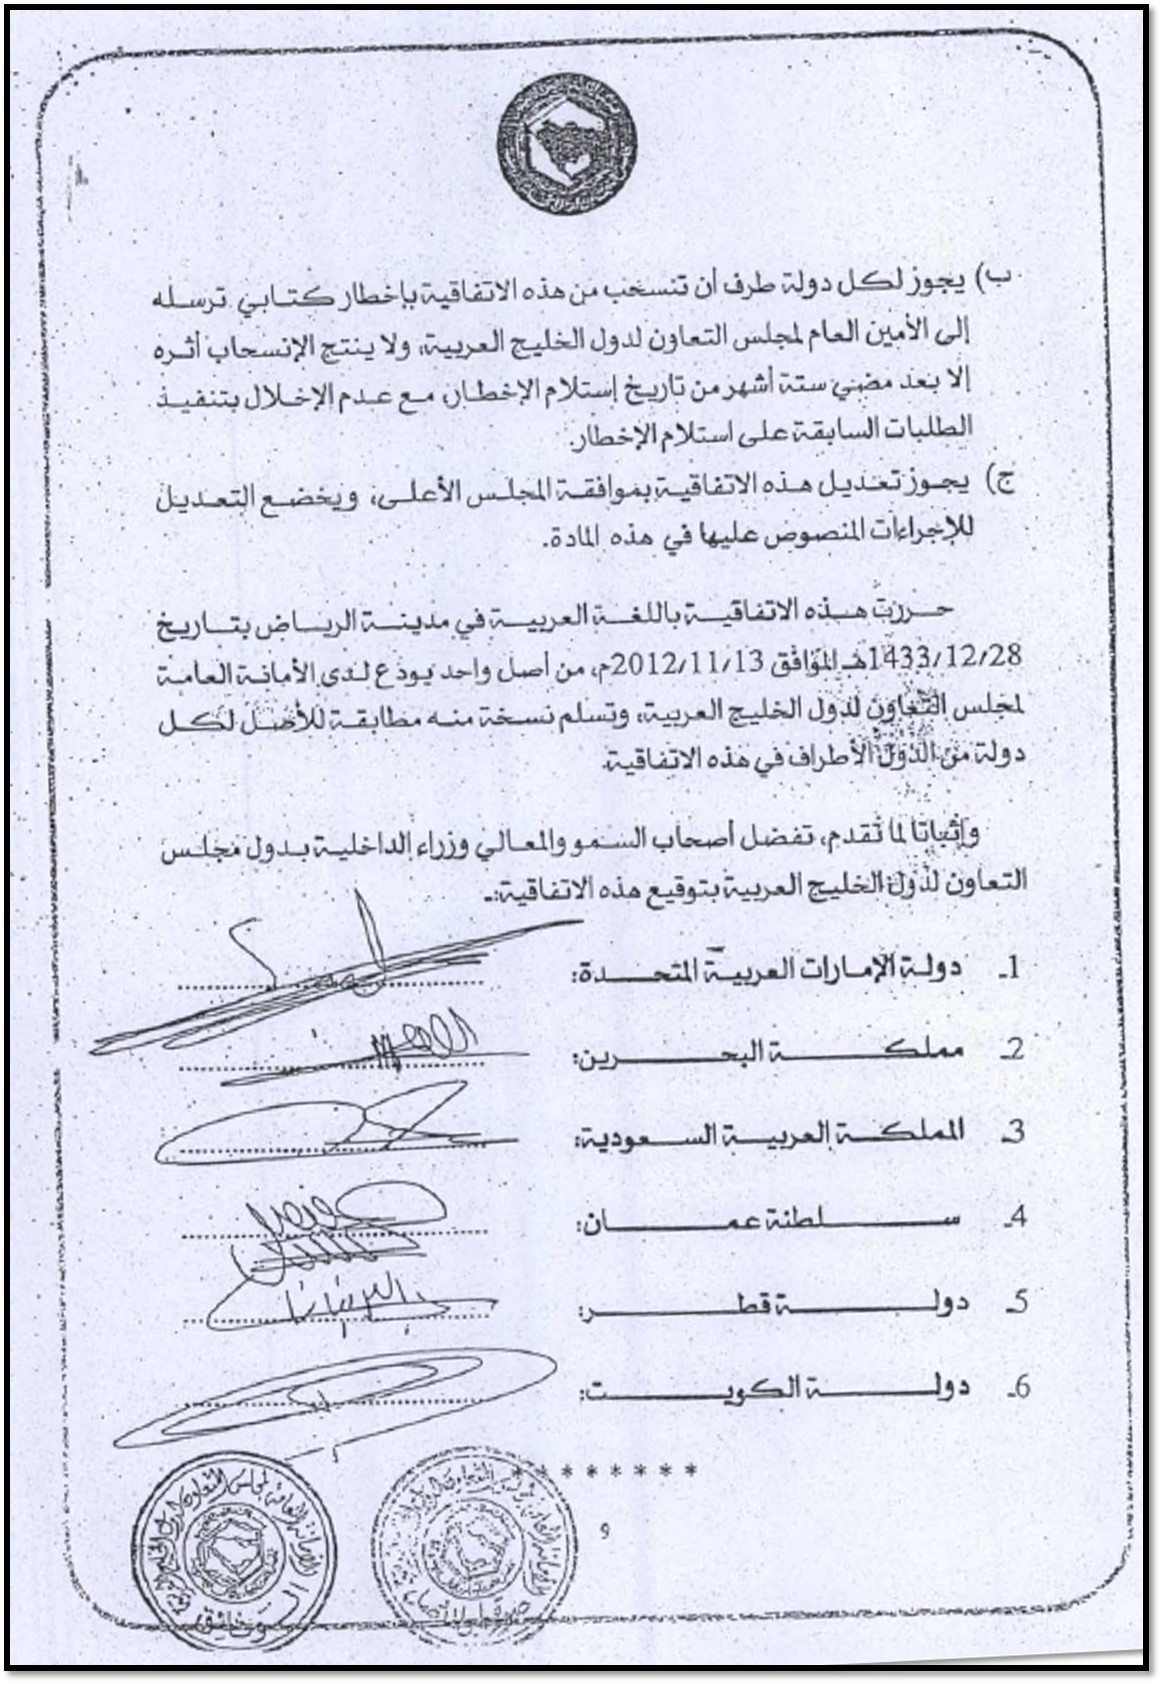 ب) يجوز لكل دولة طرف أن تنسحب من هذه الاتفاقية بإخطار كتابي ترسله
إلى الأمين العام لمجلس التعاون لدول الخليج العربية، ولا ينتج الإنسحاب أثره
إلا بعد مضي ستة أشهر من تاريخ إستلام الإخطار، مع عدم الإخلال بتنفيذ
الطلبات السابقة على استلام الإخطار.
ج) يجوز تعديل هذه الاتفاقية بموافقة المجلس الأعلى، ويخضع التعديل
للإجراءات المنصوص عليها في هذه المادة.
حررت هذه الاتفاقية باللغة العربية في مدينة الرياض بتاريخ
1433/12/28هـ الموافق 2012/11/13م، من أصل واحد يودع لدى الأمانة العامة
لمجلس التعاون لدول الخليج العربية، وتسلم نسخة منه مطابقة للأصل لكل
دولة من الدول الأطراف في هذه الاتفاقية.
وإثباتا لما تقدم، تفضل أصحاب السمو والمعالي وزراء الداخلية بدول مجلس
التعاون لدول الخليج العربية بتوقيع هذه الاتفاقية:ـ
1ـ دولة الإمارات العربية المتحدة:
2ـ مملكة البحرين:
3ـ المملكة العربية السعودية:
4ـ سلطنة عمان:
5ـ دولة قطر:
6ـ دولة الكويت:
* * * * * * * *
9